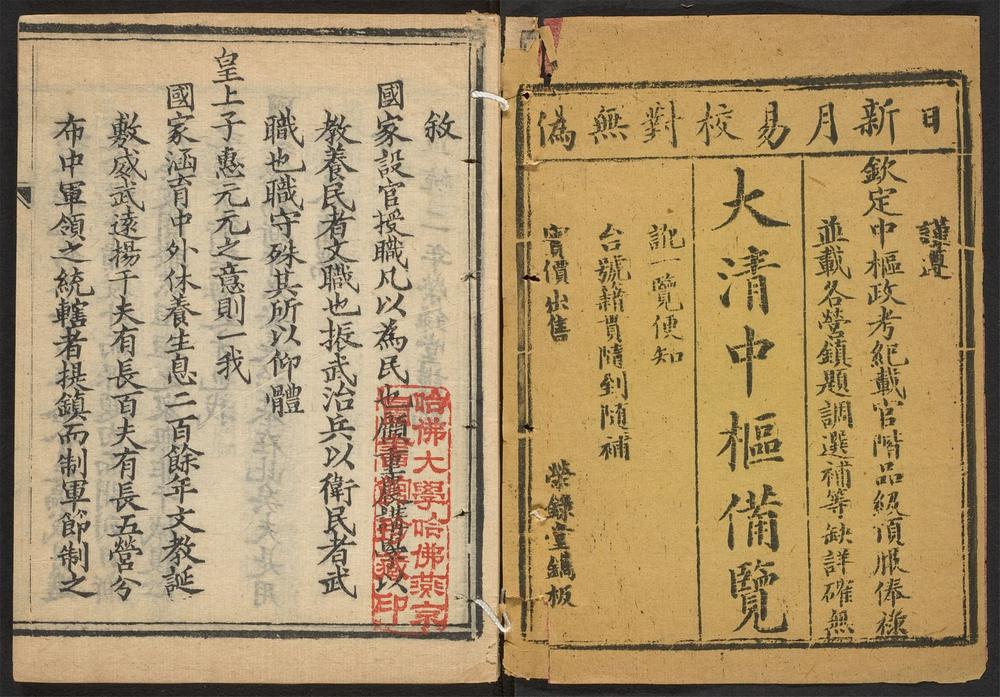 日新月易校對無偽
謹遵
欽定中樞政考紀載官階品級頂服俸祿
並載各營鎮題調選補等缺詳確無
大清中樞備覽
訛一覽便知
台號籍貫隨到隨補
實價出售
榮錄堂鐫板
敘
國家設官授職凡以為民也顧農講學以
教養民者文職也振武治兵以衛民者武
職也職守殊其所以仰體
皇上子惠元元之意則一我
國家涵育中外休養生息二百餘年文教誕
敷威武遠揚千夫有長百夫有長五營分
布中軍領之統轄者提鎮而制軍節制之
哈佛大學哈佛燕京
圖書館珍藏印